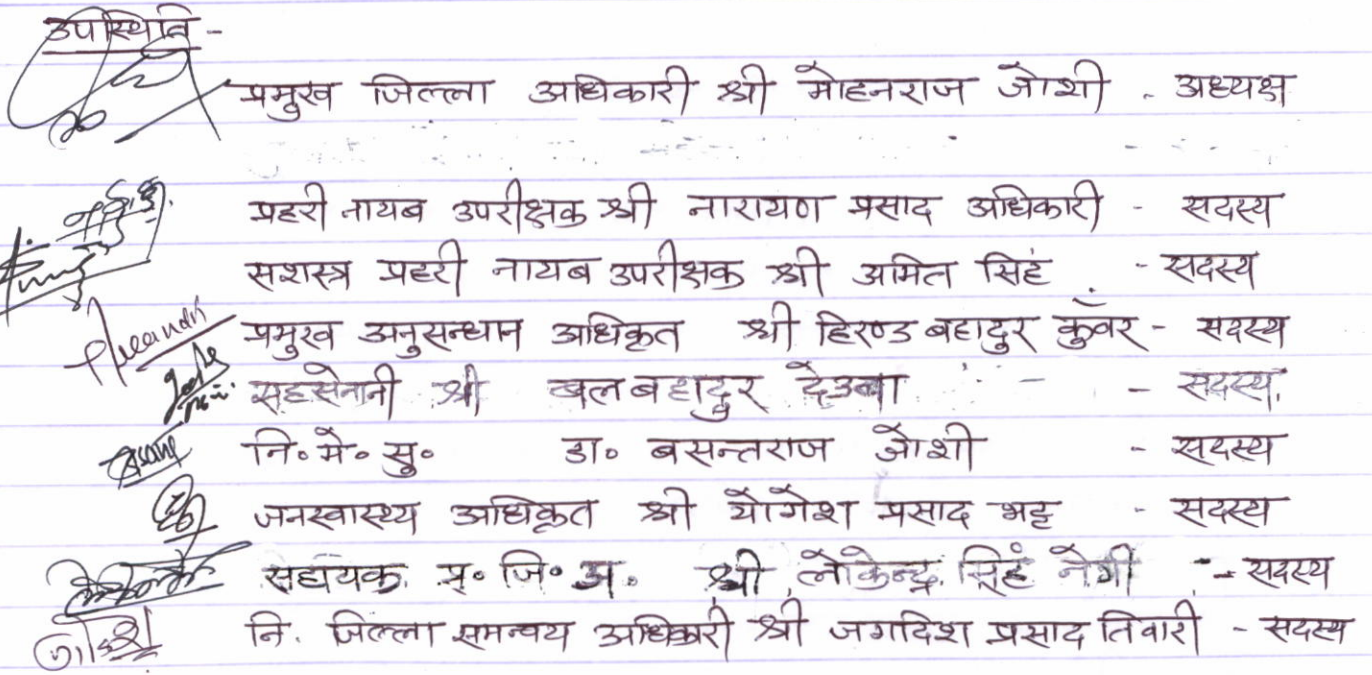 उपस्थिति -
प्रमुख जिल्ला अधिकारी श्री मोहनराज जोशी - अध्यक्ष
प्रहरी नायब उपरीक्षक श्री नारायण प्रसाद अधिकारी - सदस्य
सशस्त्र प्रहरी नायब उपरीक्षक श्री अमित सिहं - सदस्य
प्रमुख अनुसन्धान अधिकृत श्री हिरण्ड बहादुर कुँवर - सदस्य
सहसेनानी श्री बलबहादुर देउबा - सदस्य
नि॰ मे॰ सु॰ डा॰ बसन्तराज जोशी - सदस्य
जनस्वास्थ्य अधिकृत श्री योगेश प्रसाद भट्ट - सदस्य
सहायक प्र॰ जि॰ अ. श्री लोकेन्द्र सिहं नेगी - सदस्य
नि. जिल्ला समन्वय अधिकारी श्री जगदिश प्रसाद तिवारी - सदस्य